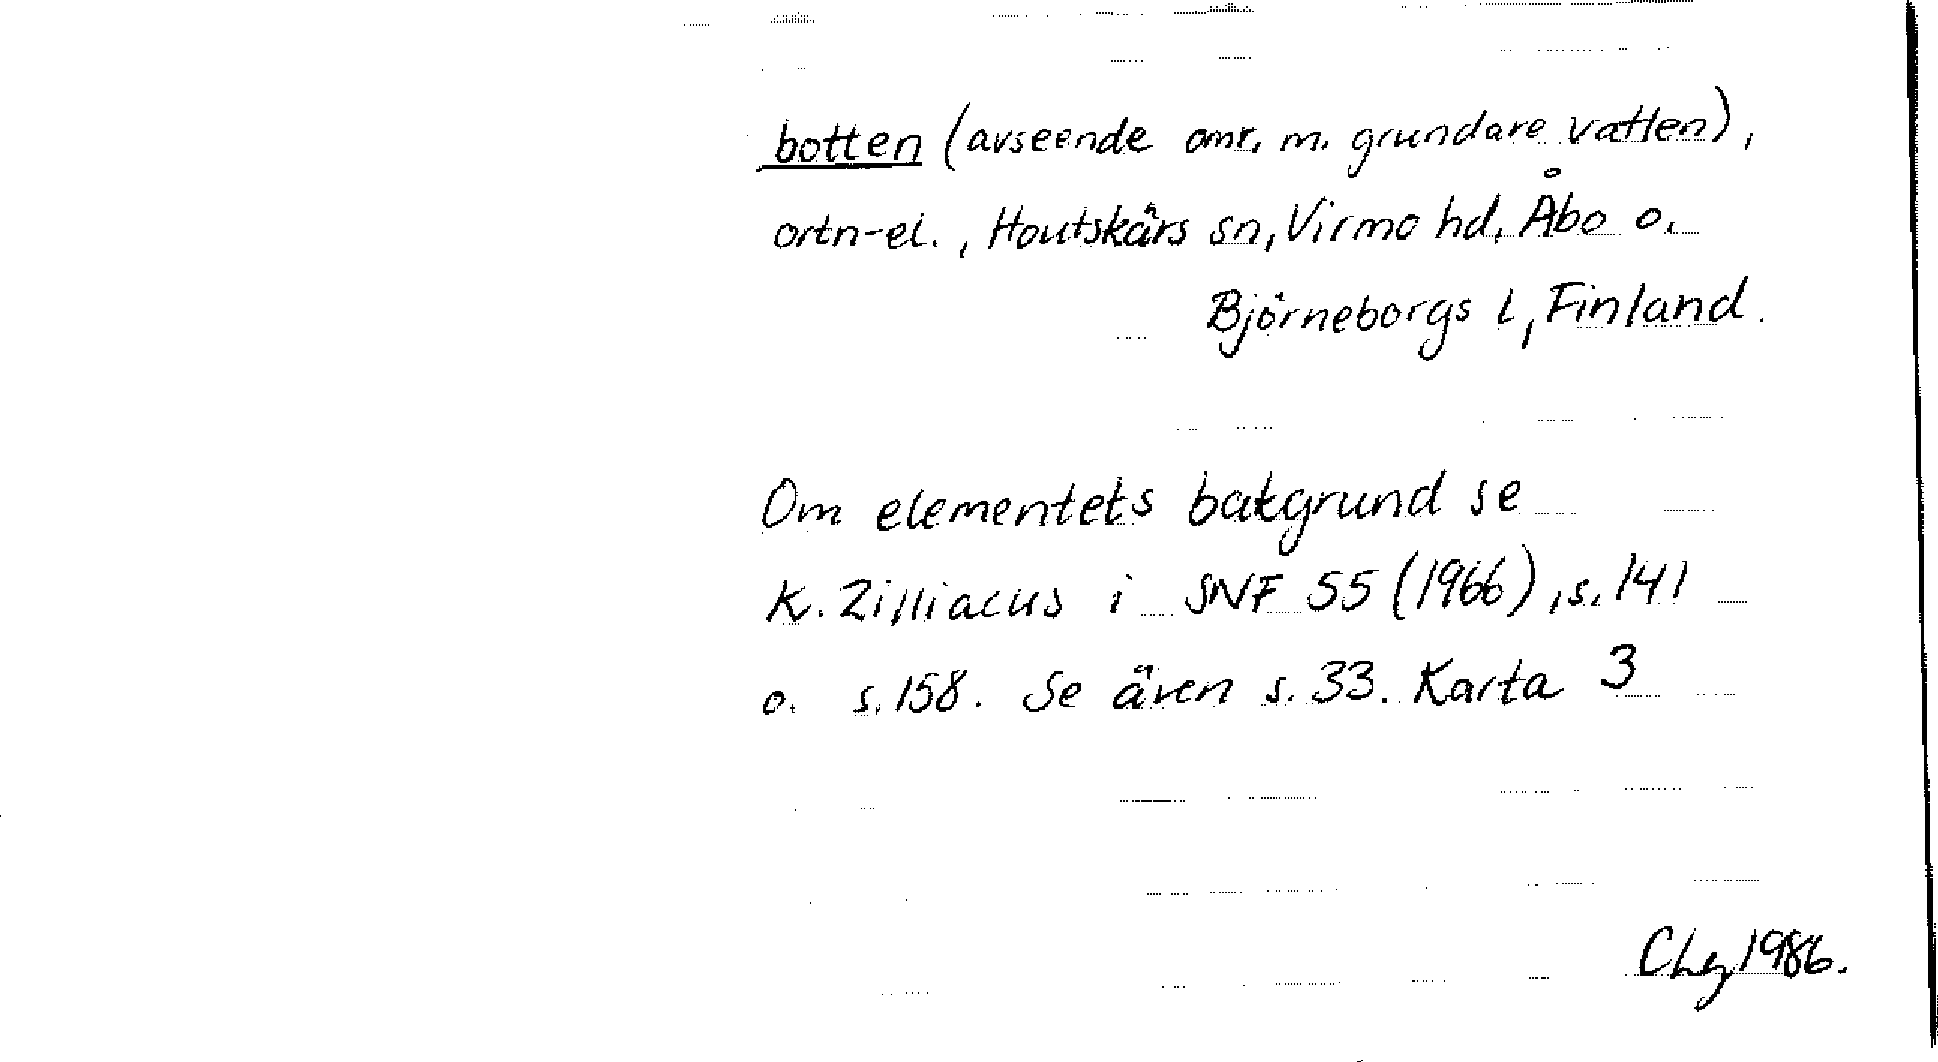 botten (avseende omr. m. grundare vatten),
ortn-el., Houtskärs sn, Virmo hd, Åbo o.
Björneborgs l, Finland.
Om elementets bakgrund se
K. Zilliacus i SNF 55 (1966), s. 141
o. s. 158. Se även s. 33. Karta 3
CLg 1986.